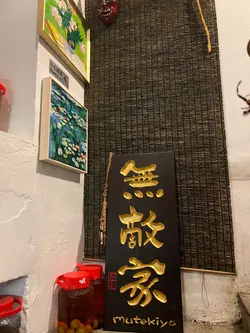 無
敵
家
mutekiya